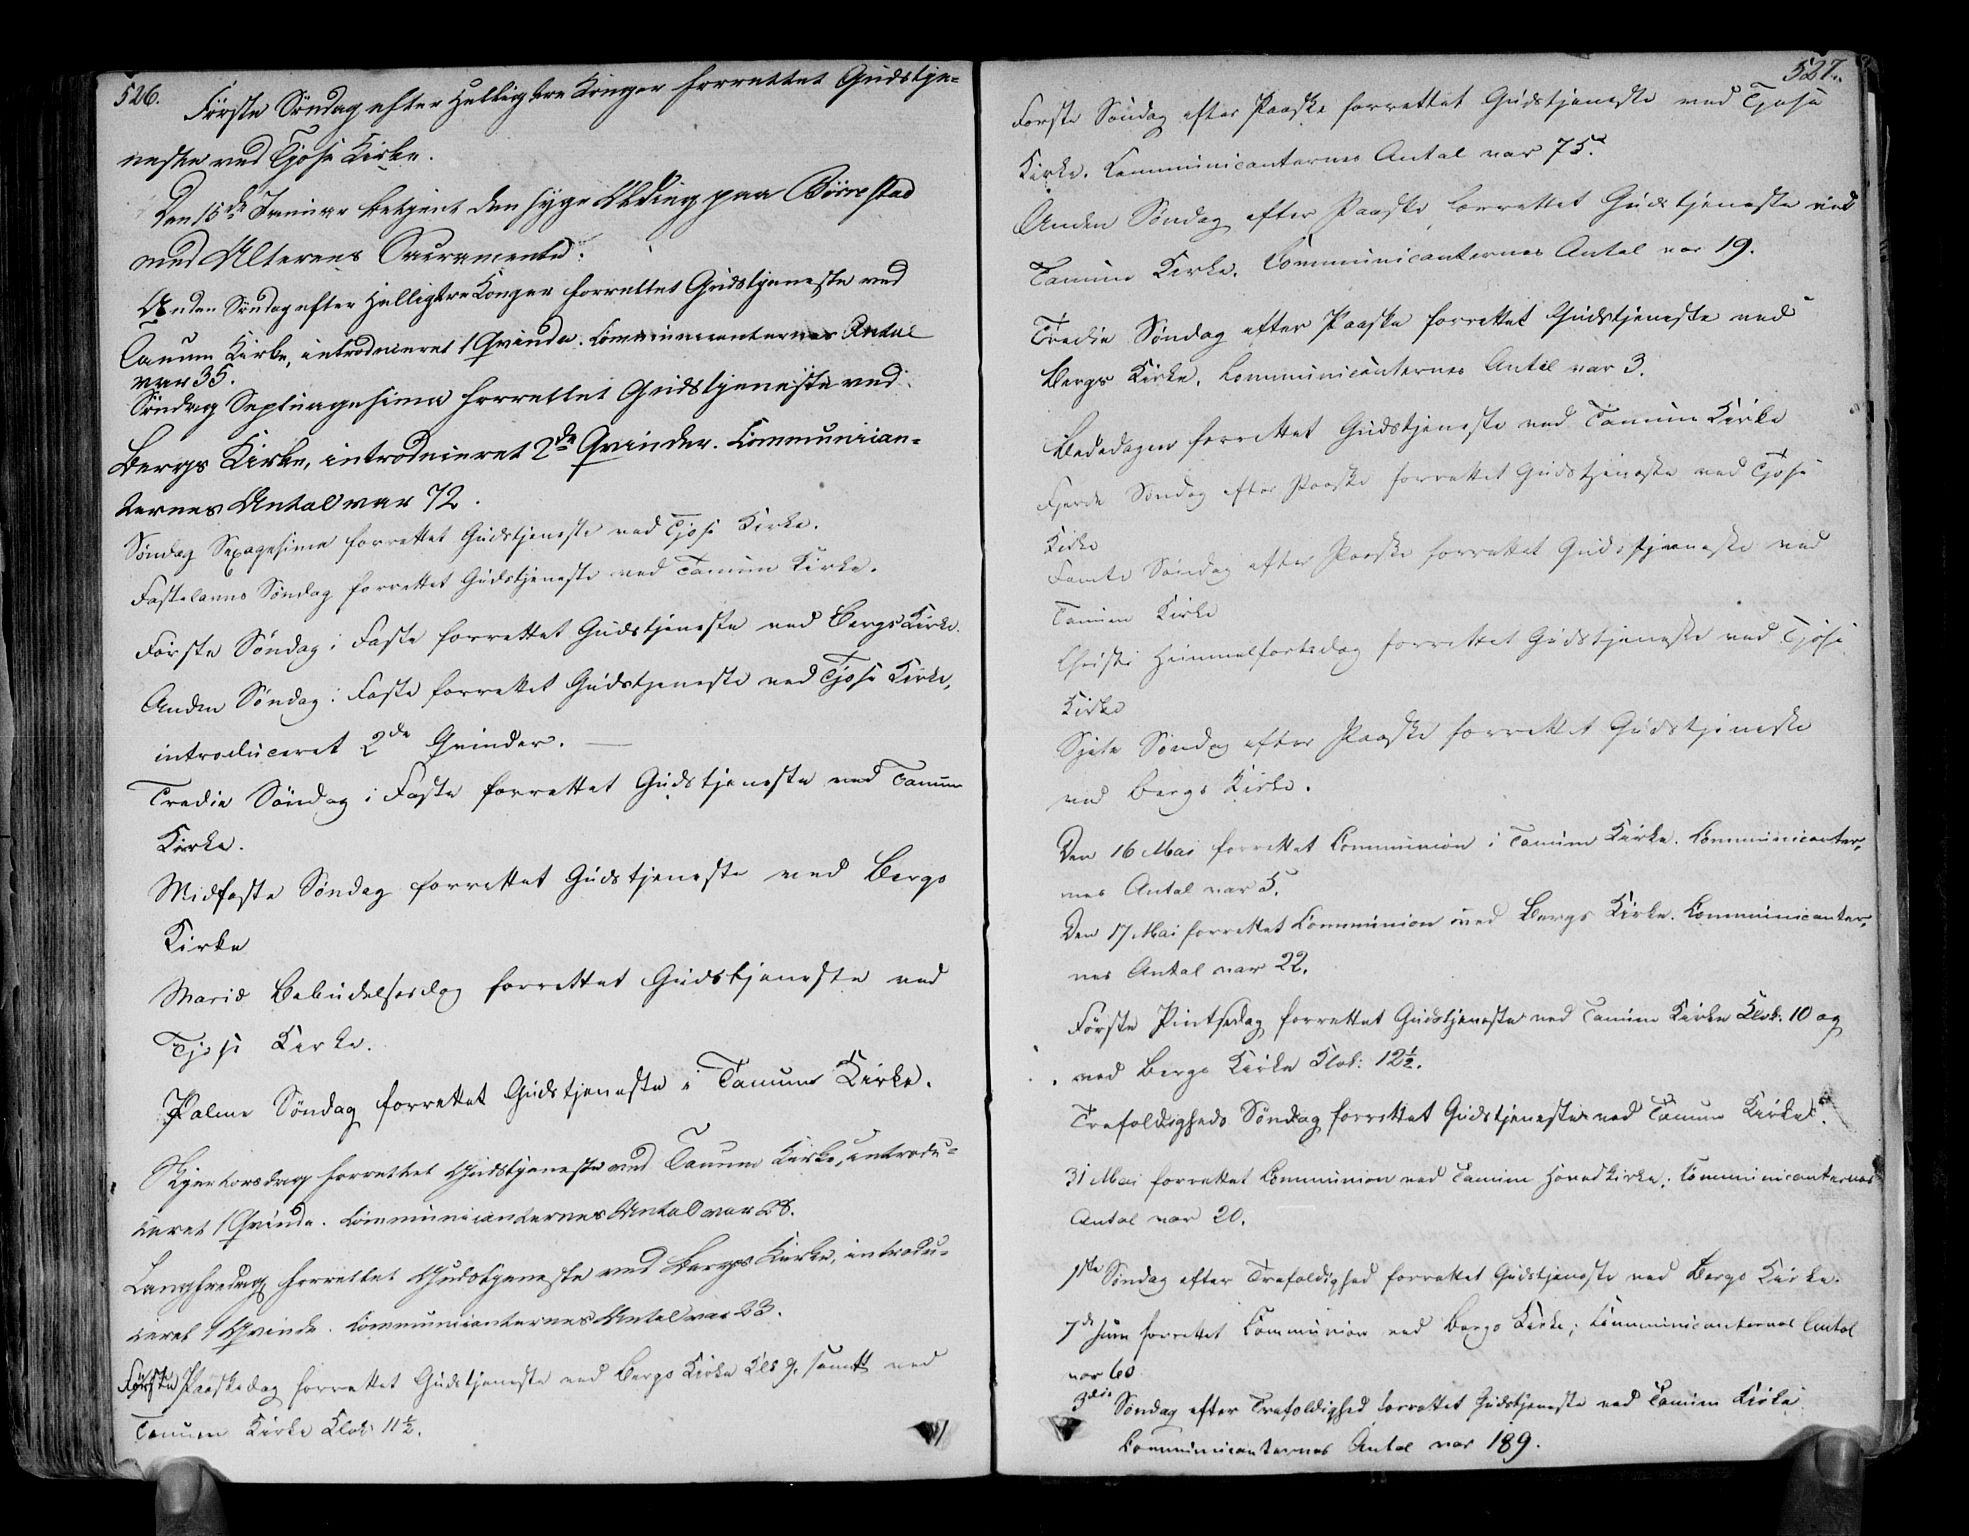 526.
Første Søndag efter Hellig tre Konger forrettet Gudstje-
neste ved Tjose Kirke.
Den 15de Januar betjent den syge Olding paa Børrestad
med Alterens Sacramente.
Anden Søndag efter Hellig tre Konger forrettet Gudstjeneste ved
Tanum Kirke, introduceret 1 Qvinde. Communicanternes Antal
var 35.
Søndag Septuagesima forrettet Gudstjeneste ved
Bergs Kirke, introduceret 2de Qvinder. Communican-
ternes Antal var 72.
Søndag Sexagesima forrettet Gudstjeneste ved Tjose Kirke.
Fastelavns Søndag forrettet Gudstjeneste ved Tanum Kirke.
Første Søndag i Faste forrettet Gudstjeneste ved Bergs Kirke.
Anden Søndag i Faste forrettet Gudstjeneste ved Tjose Kirke,
introduceret 2de Qvinder.
Tredie Søndag i Faste forrettet Gudstjeneste ved Tanum
Kirke.
Midfaste Søndag forrettet Gudstjeneste ved Bergs
Kirke
Mariæ Bebudelsesdag forrettet Gudstjeneste ved
Tjose Kirke.
Palme Søndag forrettet Gudstjeneste i Tanum Kirke.
Skjertorsdag forrettet Gudstjeneste ved Tanum Kirke, introdu-
ceret 1 Qvinde. Communicanternes Antal var 28.
Langfredag forrettet Gudstjeneste ved Bergs Kirke, introdu-
ceret 1 Qvinde. Communicanternes Antal var 23.
Første Paaskedag forrettet Gudstjeneste ved Bergs Kirke Kl 9, samt ved
Tanum Kirke Klok: 11½.
527.
Første Søndag efter Paaske forrettet Gudstjeneste ved Tjose
Kirke. Communicanternes Antal var 75.
Anden Søndag efter Paaske forrettet Gudstjeneste ved
Tanum Kirke. Communicanternes Antal var 19.
Tredie Søndag efter Paaske forrettet Gudstjeneste ved
Bergs Kirke. Communicanternes Antal var 3.
Bededagen forrettet Gudstjeneste ved Tanum Kirke
Fjerde Søndag efter Paaske forrettet Gudstjeneste ved Tjose
Kirke
Femte Søndag efter Paaske forrettet Gudstjeneste ved
Tanum Kirke
Christi Himmelfartsdag forrettet Gudstjeneste ved Tjose
Kirke
Sjete Søndag efter Paaske forrettet Gudstjeneste
ved Bergs Kirke.
Den 16 Mai forrettet Communion i Tanum Kirke. Communicanter-
nes Antal var 5.
Den 17 Mai forrettet Communion ved Bergs Kirke. Communicanter-
nes Antal var 22.
Første Pintsedag forrettet Gudstjeneste ved Tanum Kirke Klok: 10 og
ved Bergs Kirke Klok: 12½.
Trefoldigheds Søndag forrettet Gudstjeneste ved Tanum Kirke.
31 Mai forrettet Communion ved Tanum Hovedkirke; Communicanternes
Antal var 20.
1ste Søndag efter Trefoldighed forrettet Gudstjeneste ved Bergs Kirke.
7de Juni forrettet Communion ved Bergs Kirke; Communicanternes Antal
var 60
3die Søndag efter Trefoldighed forrettet Gudstjeneste ved Tanum Kirke
Communicanternes Antal var 189.